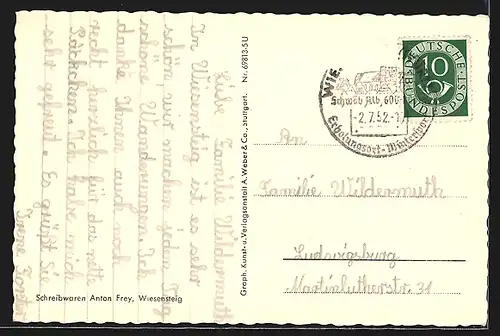 Liebe Familie Wildermuth
In Wiesensteig ist es sehr
schön, wir machen jeden Tag
schöne Wanderungen. Ich
danke Ihnen auch noch
recht herzlich für das nette
Päckchen. Ich habe mich
sehr gefreut. Es grüßt Sie
Irene
Schreibwaren Anton Frey, Wiesensteig
Graph. Kunst- u. Verlagsanstalt A. Weber & Co., Stuttgart.
Nr. 69813-5 U
WIE
Schwäb Alb, 600
-2.7.52.-1
Erholungsort-Wintersport
DEUTSCHE
10
BUNDESPOST
An
Familie Wildermuth
Ludwigsburg
Martinlutherstr. 31